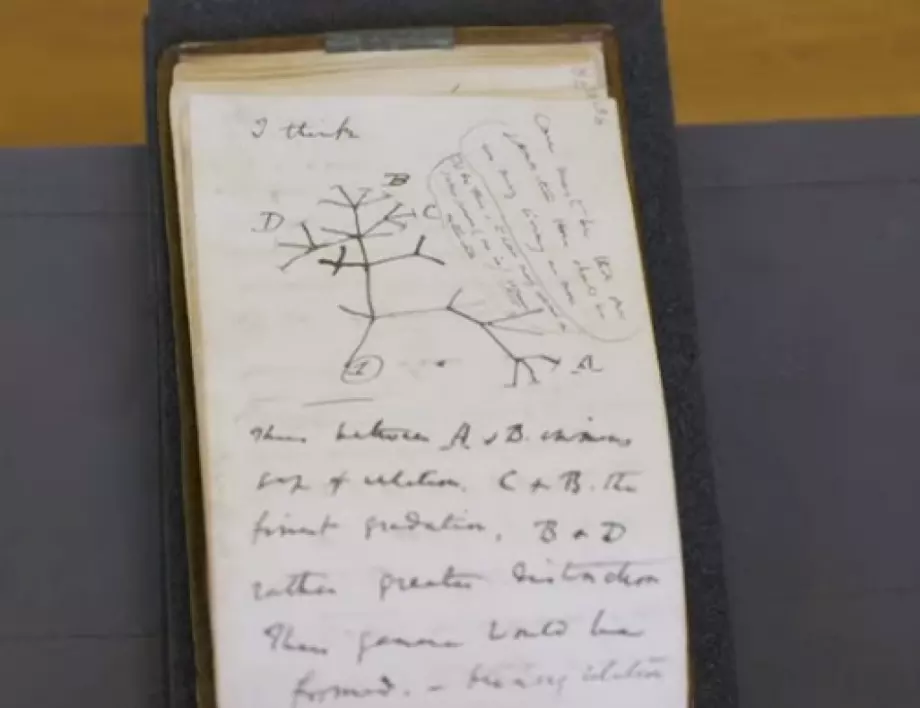 I think
Case must be that one
generation then should be
as many living as now
B
D
C
1
A
Thus between A & B. immense
gap of relation. C & B. the
finest gradation, B & D
rather greater distinction
Thus genera would be
formed. — bearing relation